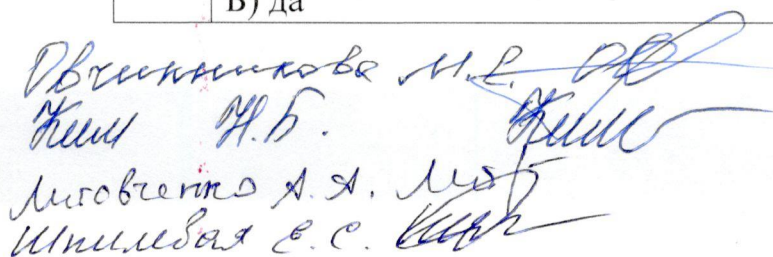 В) да
Овчинникова М.Е.
Ким Н.Б. Ким
Литовченко А.А. Лит
Шпилевая Е.С.